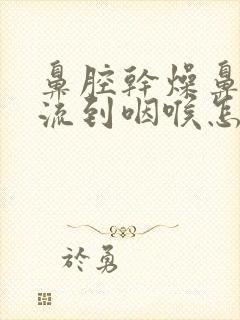 鼻腔幹燥鼻
流到咽喉怎
於勇